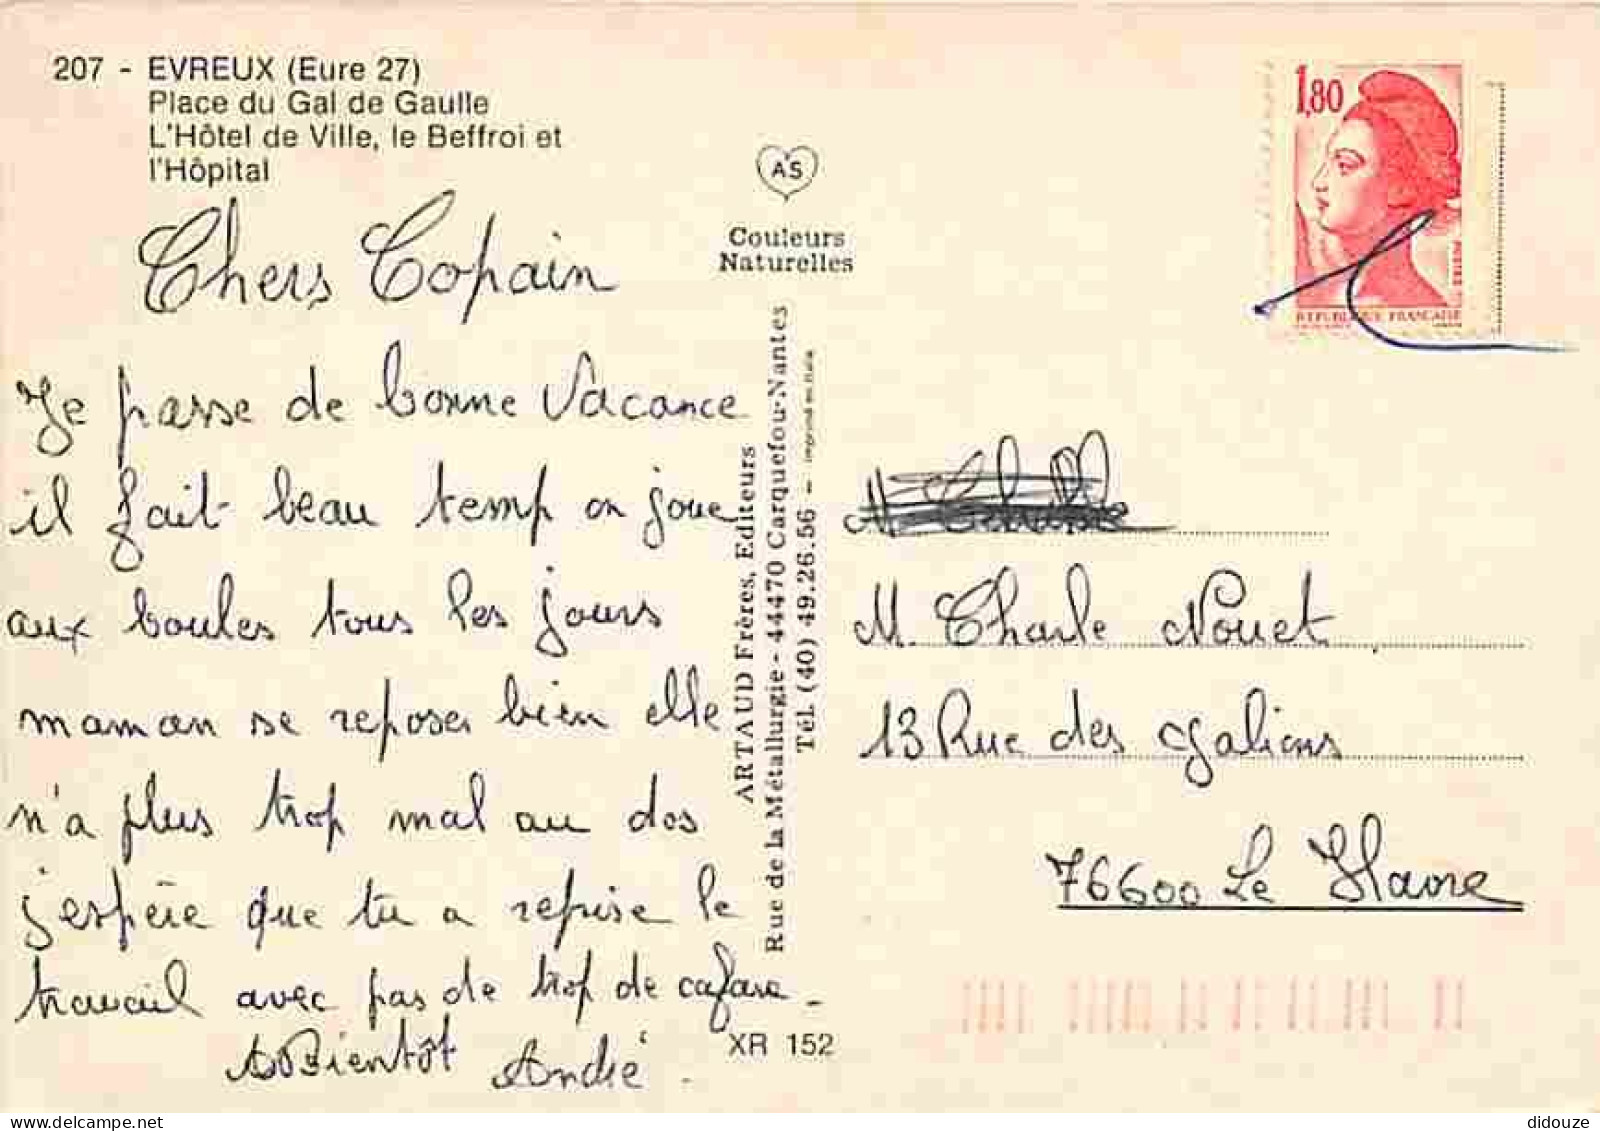 207 - EVREUX (Eure 27)
Place du Gal de Gaulle
L'Hôtel de Ville, le Beffroi et
l'Hôpital
Chers Copain
Je passe de bonne Vacance
il fait beau temp on joue
aux boules tous les jours
maman se reposer bien elle
n'a plus trop mal au dos
j'espére que tu a repise le
travail avec pas de trop de cafare
A Bientôt André.
AS
Couleurs
Naturelles
ARTAUD Frères, Editeurs
Rue de la Métallurgie - 44470 Carquefou-Nantes
Tél. (40) 49.26.56 - imprimé en Italie
XR 152
1,80
POSTES
RÉPUBLIQUE FRANÇAISE
M
M. Charle Nouet
13 Rue des galions
76600 Le Havre
didouze